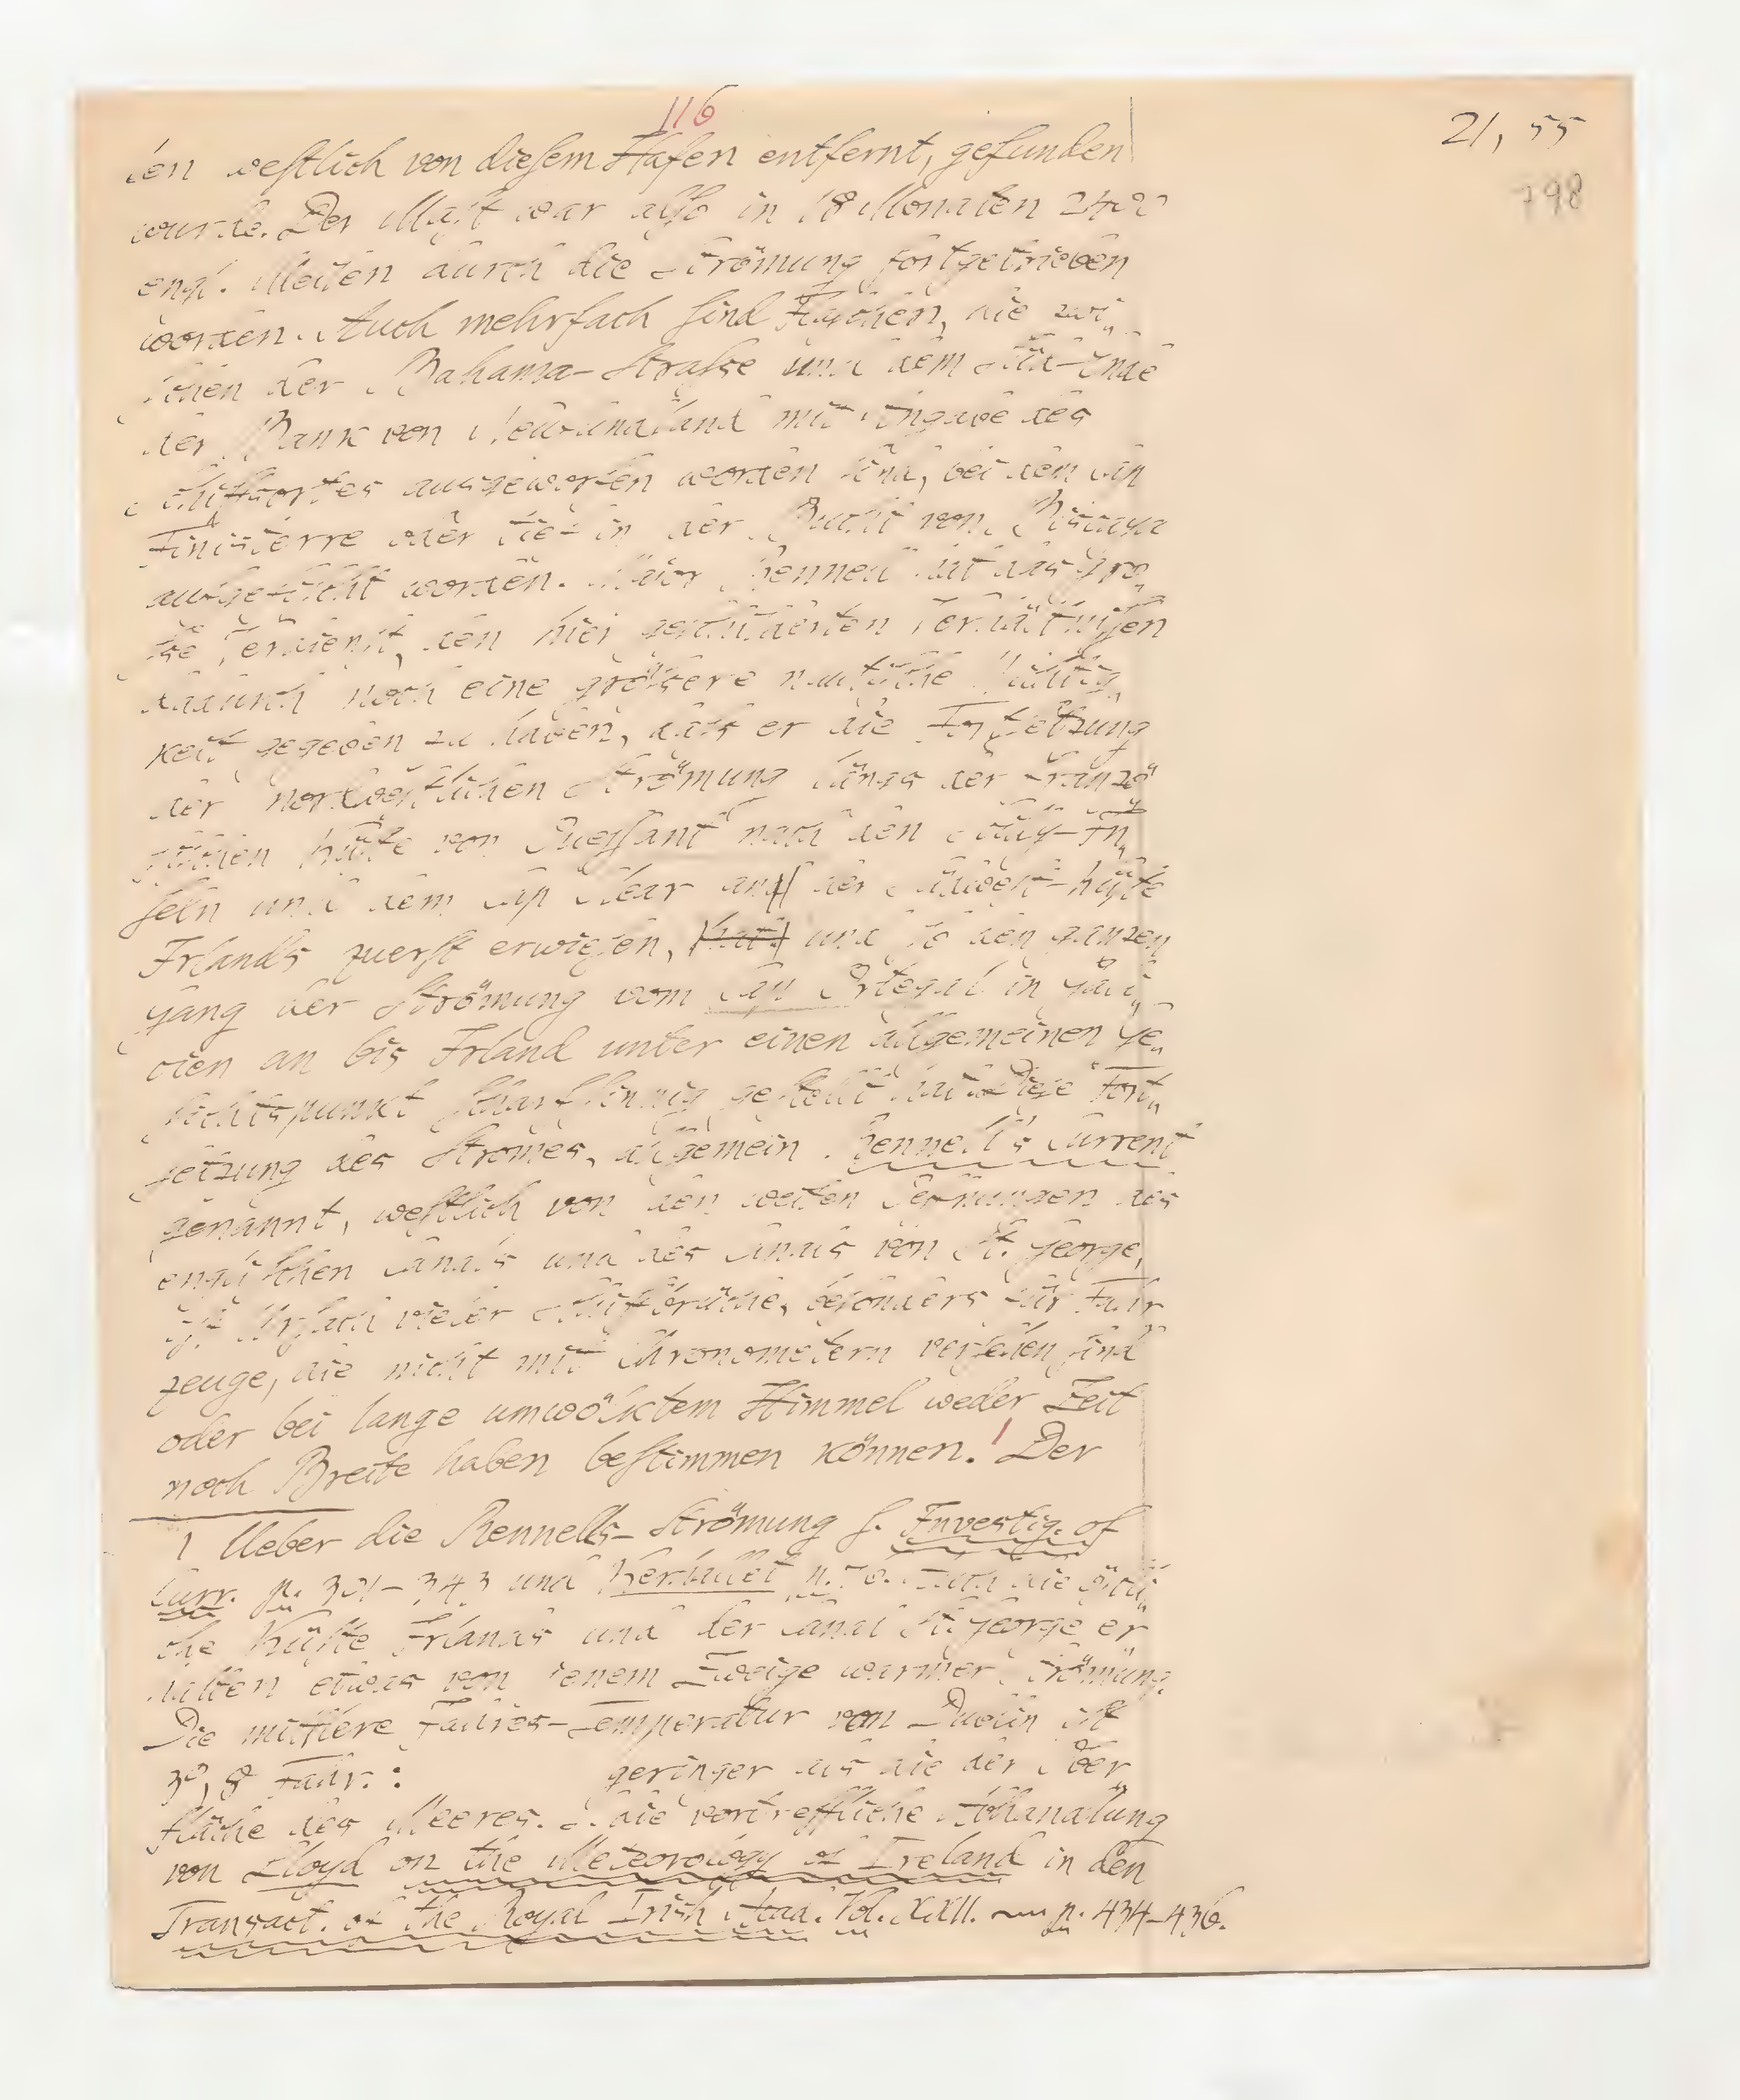 116
21, 55
798
len westlich von diesem Hafen entfernt, gefunden
wurde. Der Mast war also in 18 Monaten 2400
engl. Meilen durch die Strömung fortgetrieben
worden. Auch mehrfach sind Flaschen, die zwi„
schen der Bahama-Straße und dem Süd-Ende
der Bank von Neufundland mit Angabe des
Schiffsortes ausgeworfen worden sind, bei dem Cap
Finisterre oder tief in der Bucht von Biscaya
aufgefischt worden. Major Rennell hat das gro„
ße Verdienst, den hier geschilderten Verhältnissen
dadurch noch eine größere nautische Wichtig„
keit gegeben zu haben, daß er die Fortsetzung
der nordwestlichen Strömung längs der franzö„
sischen Küste von Ouessant nach den Scilly-In„
seln und dem Cap Clear an der Südwest-Küste
Irlands zuerst erwiesen, hat und so den ganzen
Gang der Strömung vom Cap Ortegal in Gali„
cien an bis Irland unter einen allgemeinen Ge„
sichtspunkt scharfsinnig gestellt hat. Diese Fort„
setzung des Stromes, allgemein Rennell's Current
genannt, westlich von den weiten Oeffnungen des
englischen Canals und des Canals von St. George,
ist Ursach vieler Schiffbrüche, besonders für Fahr
zeuge, die nicht mit Chronometern versehen sind
oder bei lange umwölktem Himmel weder Zeit
noch Breite haben bestimmen können.1 Der
1 Ueber die Rennells-Strömung s. Investig. of
Curr. p. 301-343 und Kerhallet p. Auch die östli„
che Küste Irlands und der Canal St. George er„
halten etwas von jenem Zweige warmer Strömung.
Die mittlere Jahres-Temperatur von Dublin ist
3°, 8 Fahr.: geringer als die der Ober
fläche des Meeres. S. die vortreffliche Abhandlung
von Lloyd on the Meteorology of Ireland in den
Transact. of the Royal Irish Acad. Vol. XXII. p. 434-436.